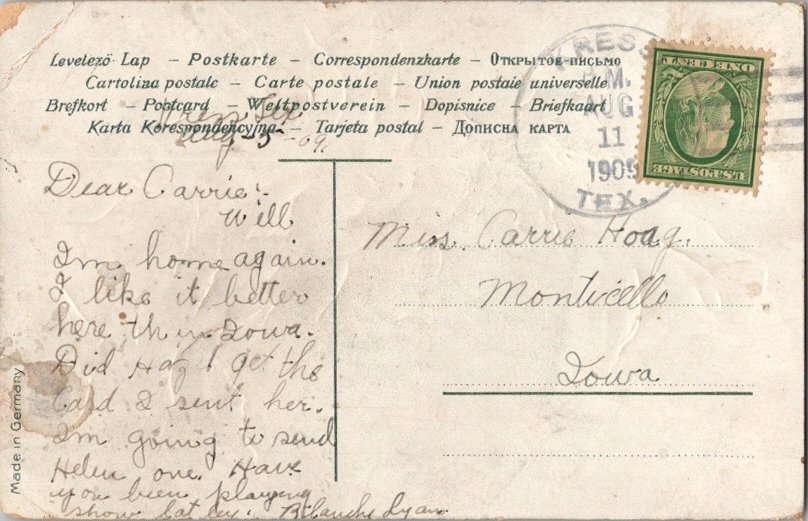 Levelező-Lap – Postkarte – Correspondenzkarte – Открытое письмо
Cartolina postale – Carte postale – Union postale universelle
Brefkort – Postcard – Weltpostverein – Dopisnice – Briefkaart
Karta Korespondencyjna – Tarjeta postal – Дописна карта
KRESS
P.M.
AUG
11
1909
TEX.
ONE CENT
U.S. POSTAGE
Kress Tex
Aug-5-09.
Dear Carrie:-
Well
I'm home again.
I like it better
here than Iowa.
Did Hazel get the
Card I sent her.
I'm going to send
Helen one. Have
you been playing
show lately. Blanche Lyan
Miss. Carrie Hoag.
Monticello
Iowa
Made in Germany